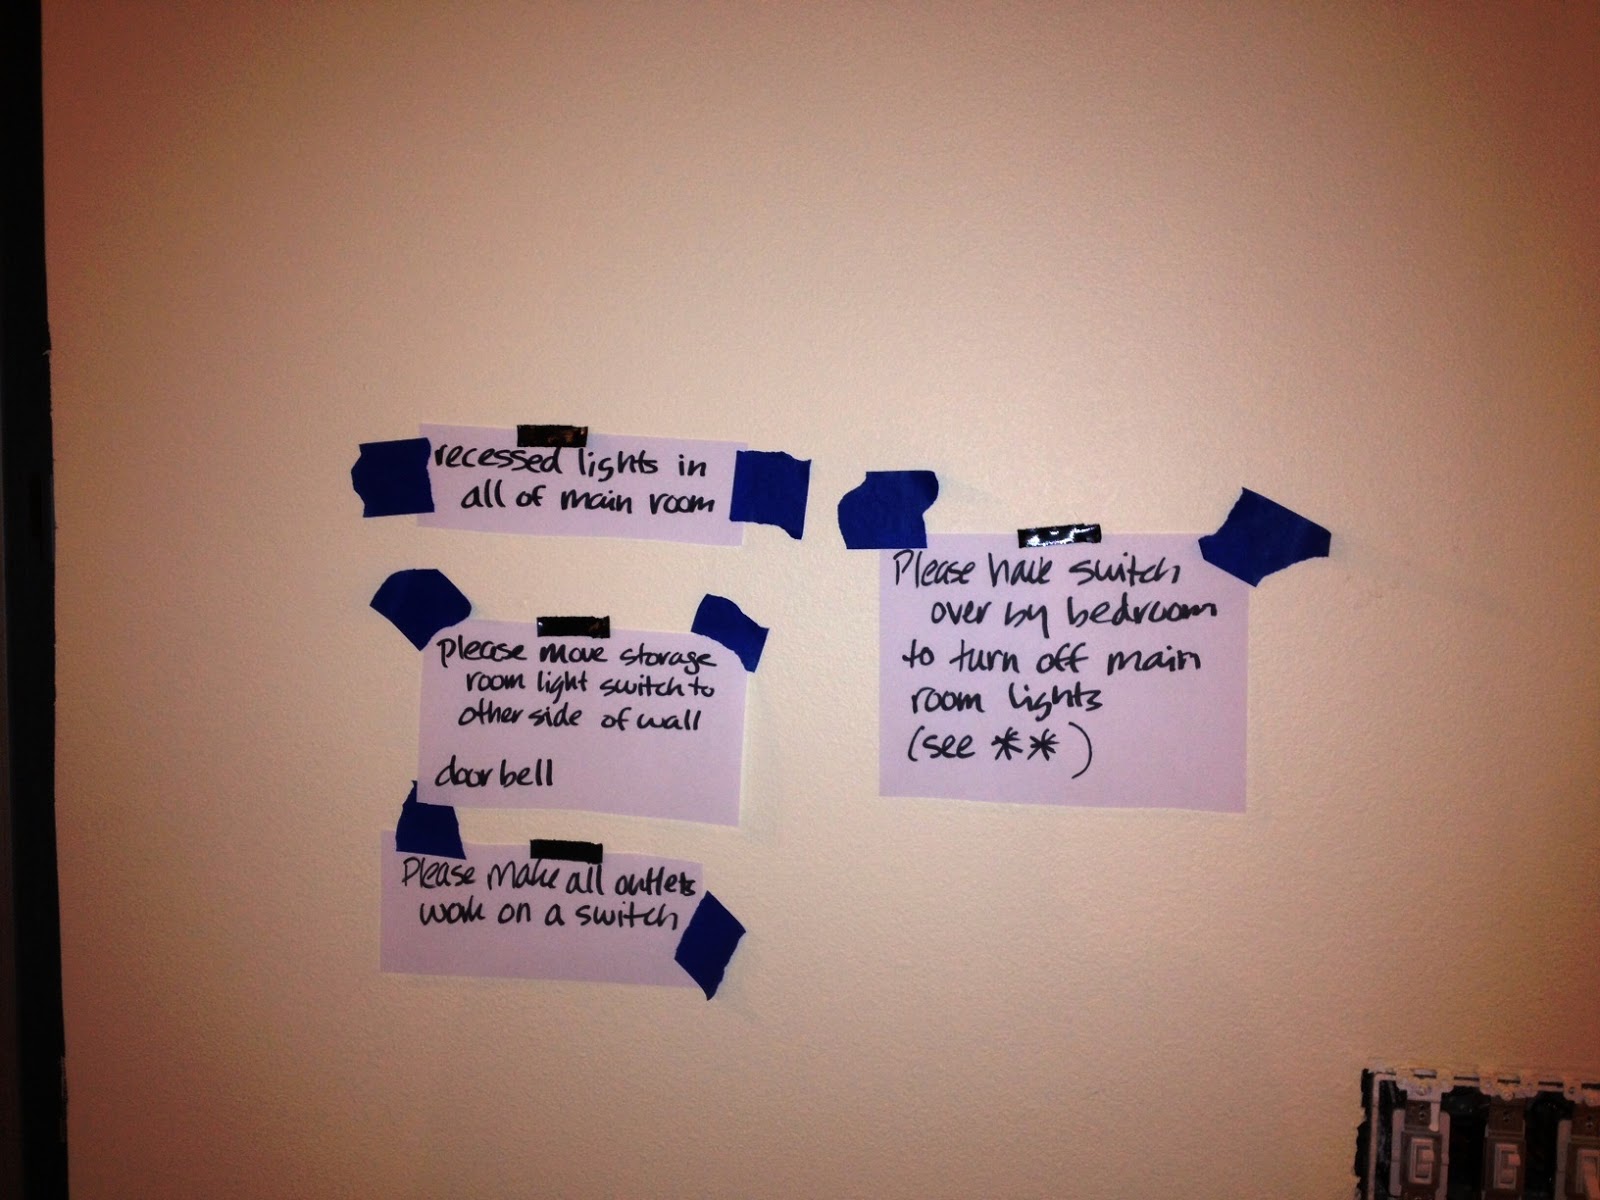 recessed lights in
all of main room
please move storage
room light switch to
other side of wall
doorbell
Please make all outlets
work on a switch
Please have switch
over by bedroom
to turn off main
room lights
(see **)